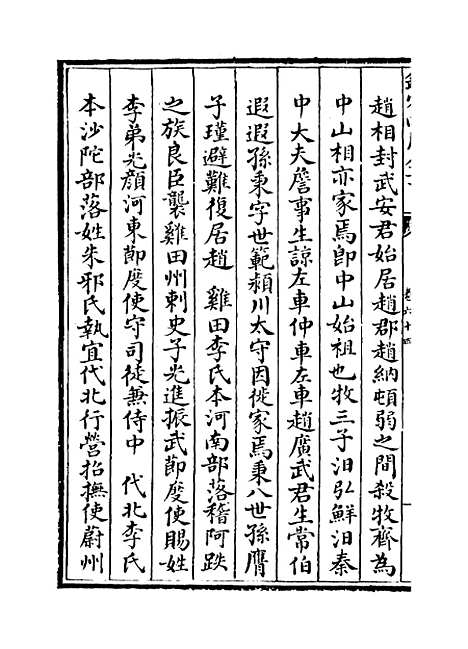 趙相封武安君始居趙郡趙納頓弱之間殺牧齊為
中山相亦家焉即中山始祖也牧三子汨弘鮮汨秦
中大夫詹事生諒左車仲車左車趙廣武君生常伯
遐遐孫秉字世範潁川太守因徙家焉秉八世孫膺
子瑾避難復居趙　雞田李氏本河南部落稽阿跌
之族良臣襲雞田州刺史子光進振武節度使賜姓
李弟光顔河東節度使守司徒兼侍中　代北李氏
本沙陀部落姓朱邪氏執宜代北行營招撫使蔚州